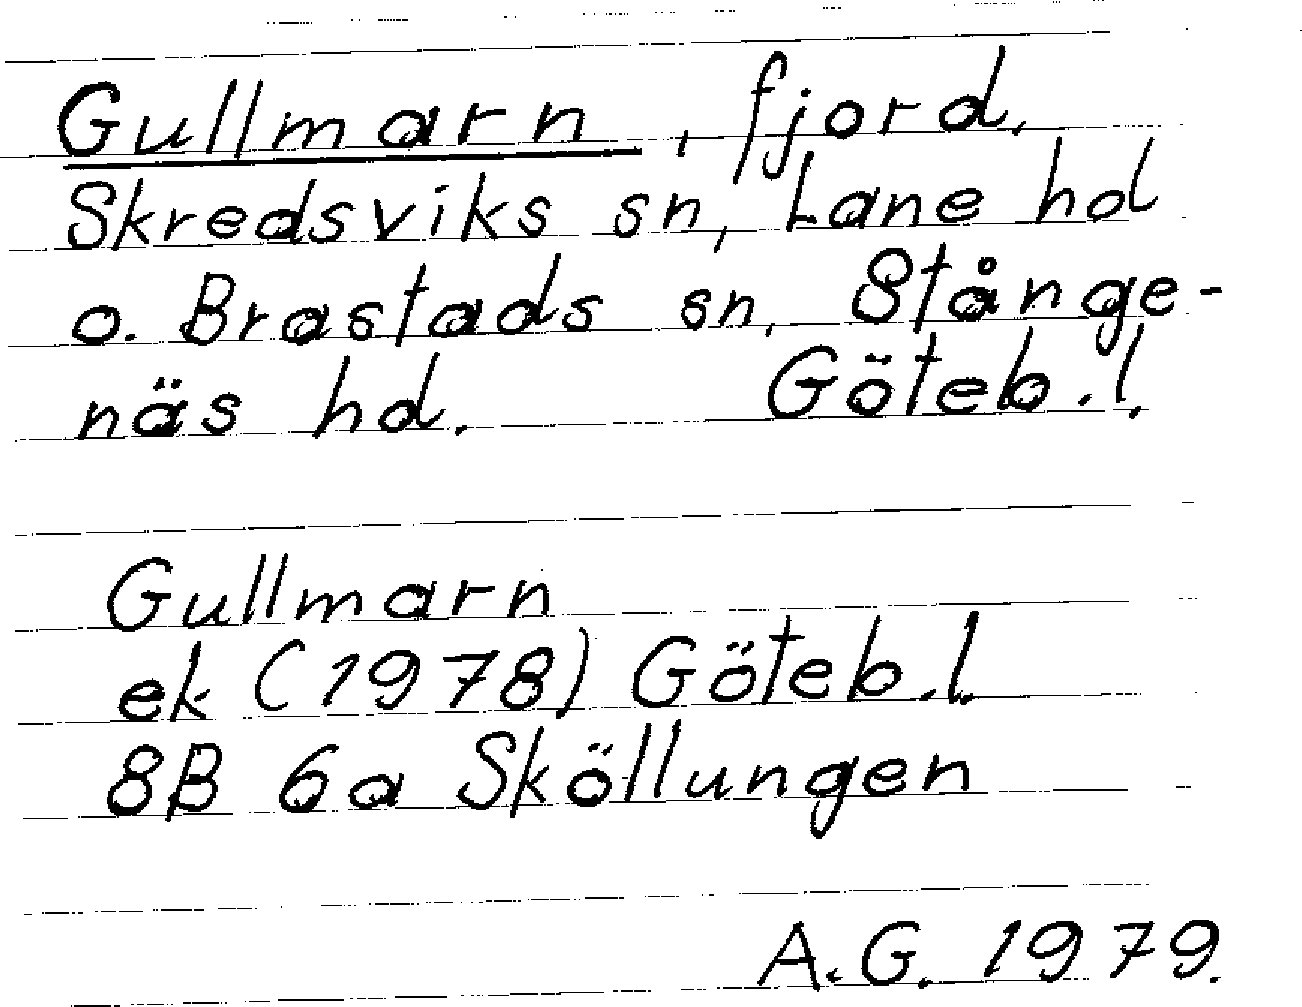 Gullmarn, fjord,
Skredsviks sn, Lane hd
o. Brastads sn, Stånge-
näs hd. Göteb.l.
Gullmarn
ek (1978) Göteb.l.
8B 6a Sköllungen
A.G. 1979.